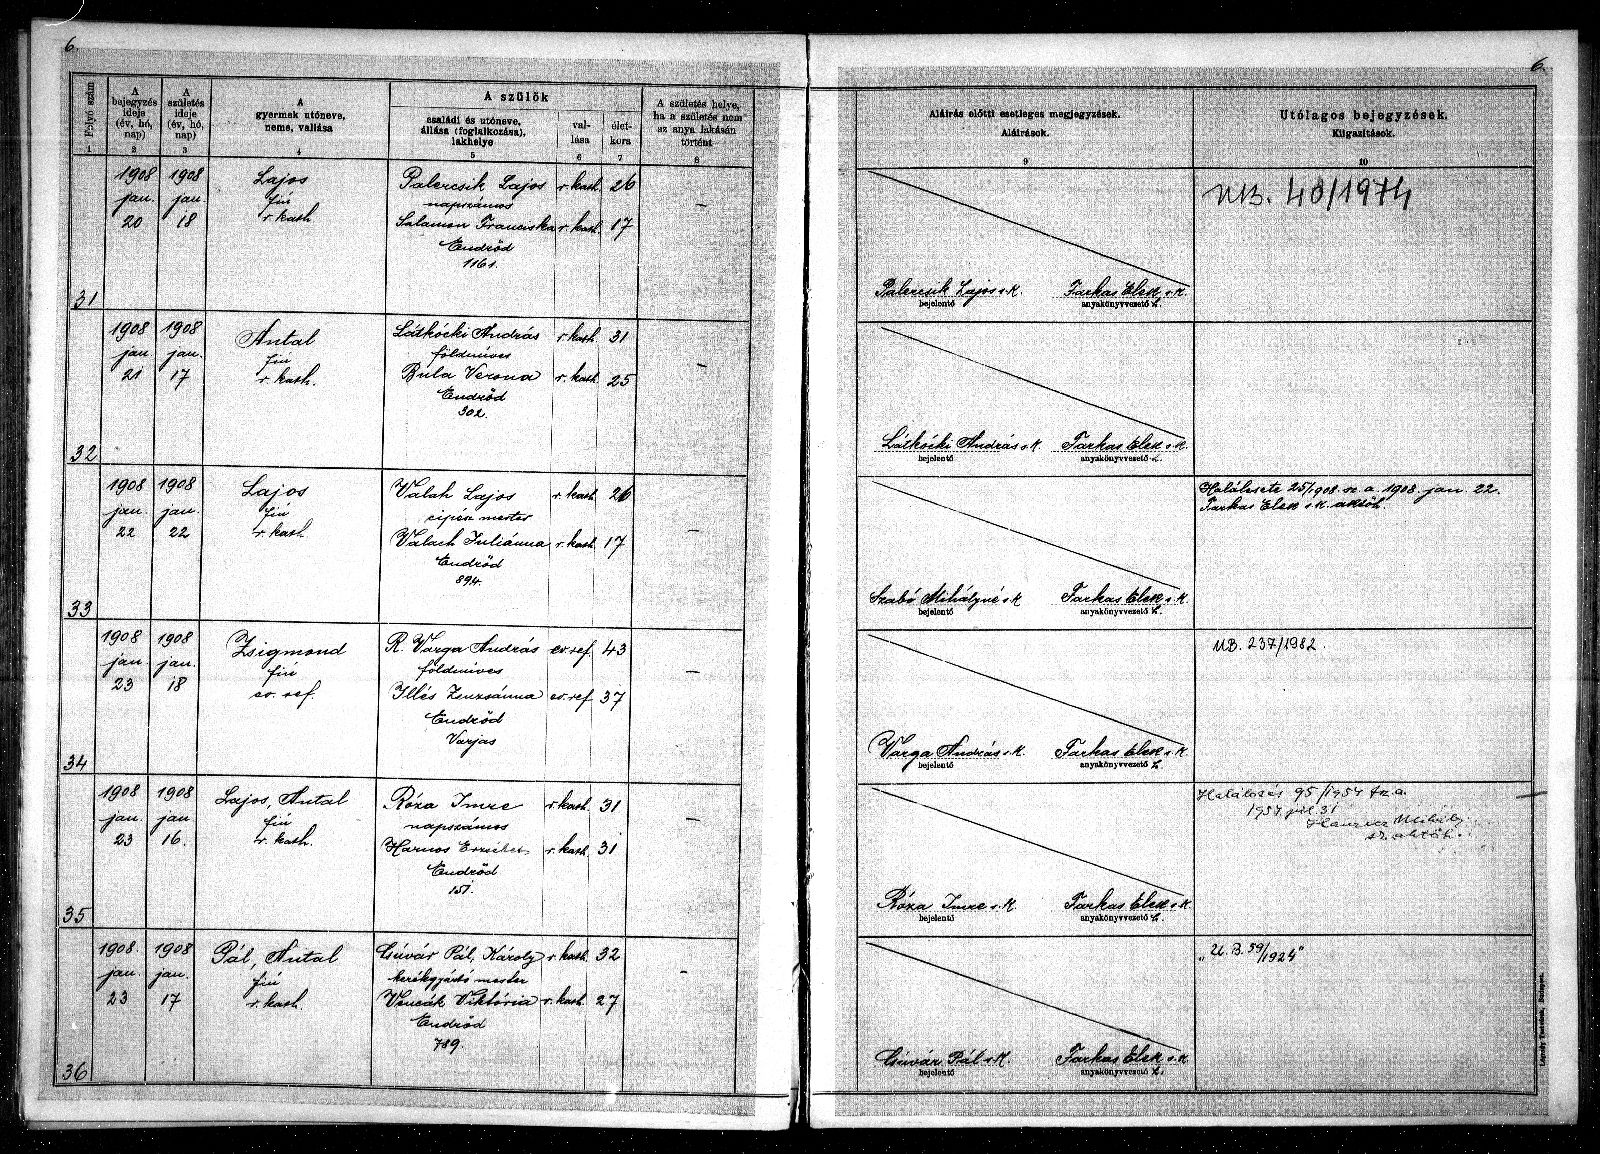 6.
6.
Folyó szám
A bejegyzés ideje (év, hó, nap)
A születés ideje (év, hó, nap)
A gyermek utóneve, neme, vallása
A szülők
családi és utóneve, állása (foglalkozása), lakhelye
val-lása
élet-kora
A születés helye, ha a születés nem az anya lakásán történt
Aláírás előtti esetleges megjegyzések.
Aláírások.
Utólagos bejegyzések.
Kiigazítások.
1 2 3 4 5 6 7 8 9 10
31
1908 jan. 20
1908 jan. 18
Lajos
fiú
r. kath.
Palercsik Lajos r. kath. 26
napszámos
Salamon Franciska r. kath. 17
Endrőd
1161.
—
Palercsik Lajos s. k.
bejelentő
Farkas Elek s. k.
anyakönyvvezető h.
UB. 40/1974
32
1908 jan. 21
1908 jan. 17
Antal
fiú
r. kath.
Látkócki András r. kath. 31
földmíves
Bula Verona r. kath. 25
Endrőd
302.
—
Látkócki András s. k.
bejelentő
Farkas Elek s. k.
anyakönyvvezető h.
33
1908 jan. 22
1908 jan. 22
Lajos
fiú
r. kath.
Valah Lajos r. kath. 26
cipész mester
Valach Juliánna r. kath. 17
Endrőd
894.
—
Szabó Mihályné s. k.
bejelentő
Farkas Elek s. k.
anyakönyvvezető h.
Halálesete 25/1908. sz. a. 1908. jan. 22.
Farkas Elek s. k. aktöh.
34
1908 jan. 23
1908 jan. 18
Zsigmond
fiú
ev. ref.
R. Varga András ev. ref. 43
földmíves
Illés Zsuzsánna ev. ref. 37
Endrőd
Varjas
—
Varga András s. k.
bejelentő
Farkas Elek s. k.
anyakönyvvezető h.
UB. 237/1982.
35
1908 jan. 23
1908 jan. 16.
Lajos, Antal
fiú
r. kath.
Róza Imre r. kath. 31
napszámos
Harnos Erzsébet r. kath. 31
Endrőd
151.
—
Róza Imre s. k.
bejelentő
Farkas Elek s. k.
anyakönyvvezető h.
Halálozás 95/1957 fsz. a.
1957. júl. 31
Mihály
36
1908. jan. 23
1908 jan. 17
Pál, Antal
fiú
r. kath.
Csúvár Pál, Károly r. kath. 32
kerékgyártó mester
Vencák Viktória r. kath. 27
Endrőd
789.
—
Csúvár Pál s. k.
bejelentő
Farkas Elek s. k.
anyakönyvvezető h.
„U. B. 59/1924"